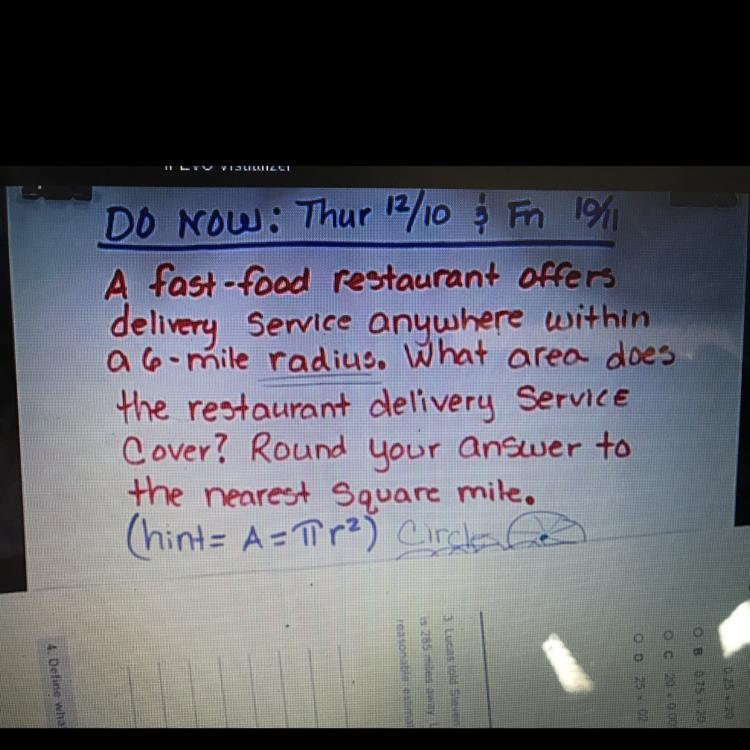 DO NOW: Thur 12/10 & Fri 10/11
A fast-food restaurant offers
delivery Service anywhere within
a 6-mile radius. What area does
the restaurant delivery Service
Cover? Round your answer to
the nearest Square mile.
(hint= A=πr²) Circle
4. Define what
3. Lucas told Steven
is 285 miles away
reasonable estimat
0.25 x 20
B 0.75 x 20
C 20 x 0.00
D 25 x 02